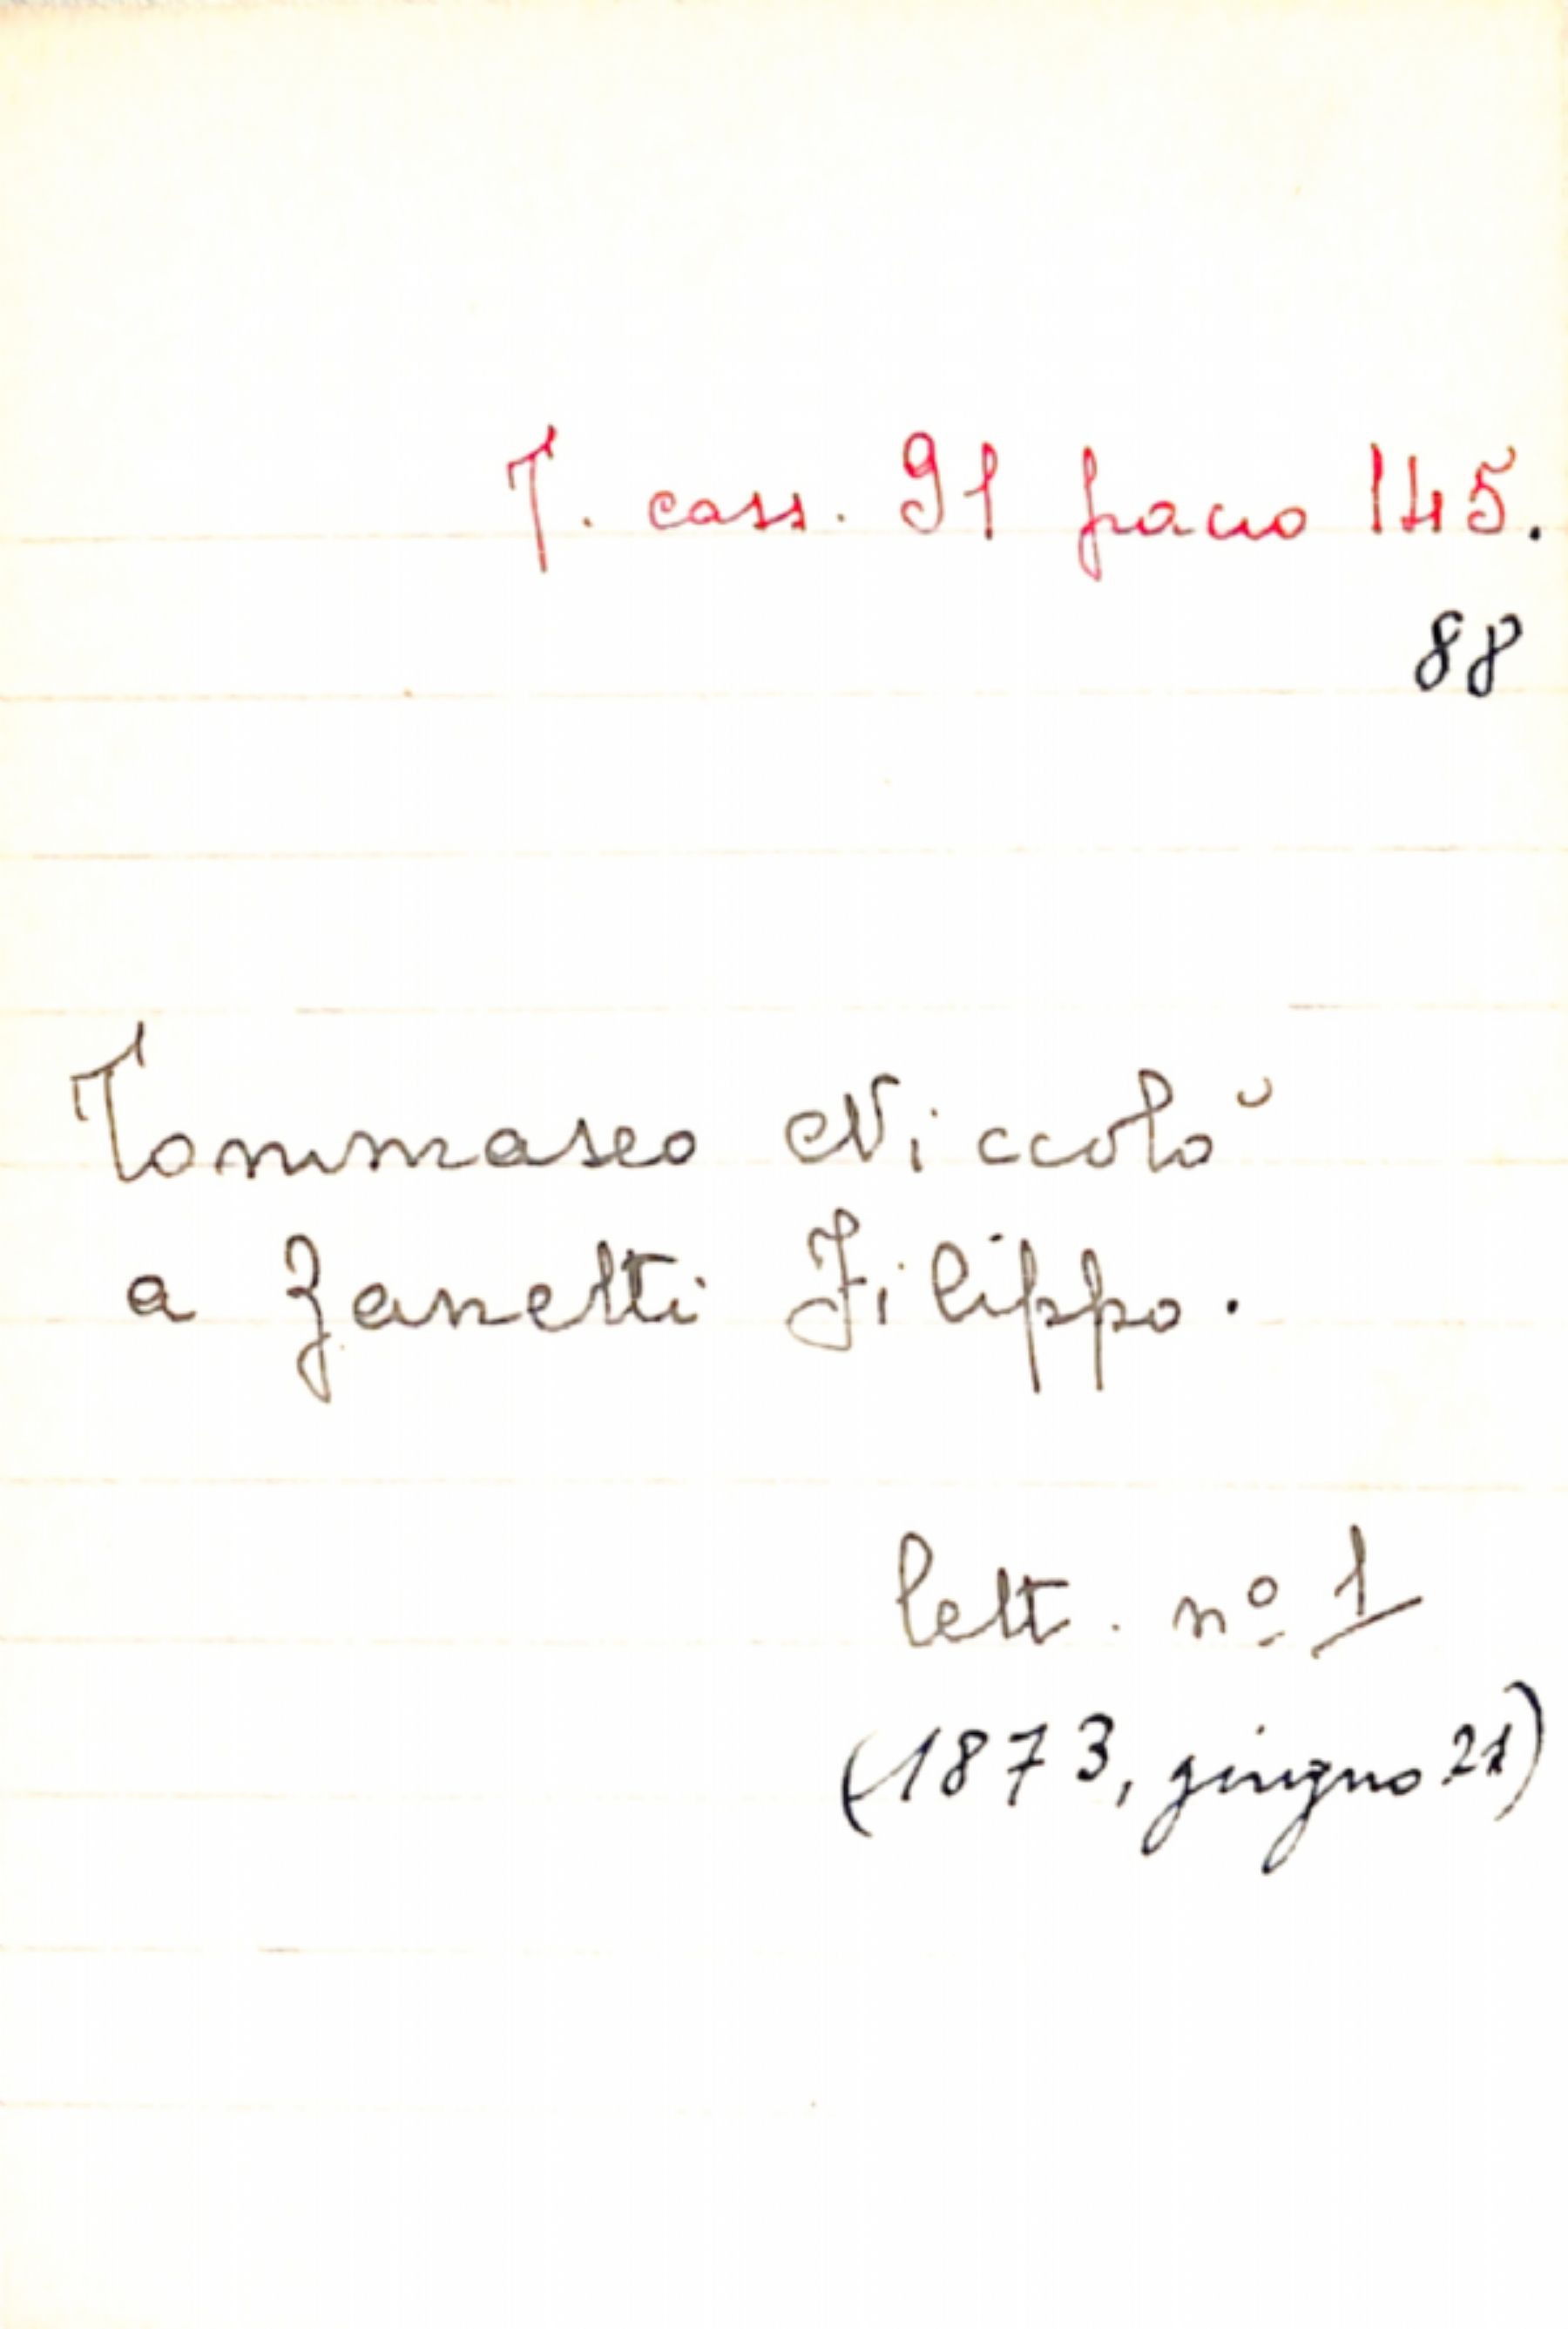 T. cass. 91 pacco 145.
88
Tommaseo Niccolò
a Zanetti Filippo.
lett. nº 1
(1873, giugno 21)